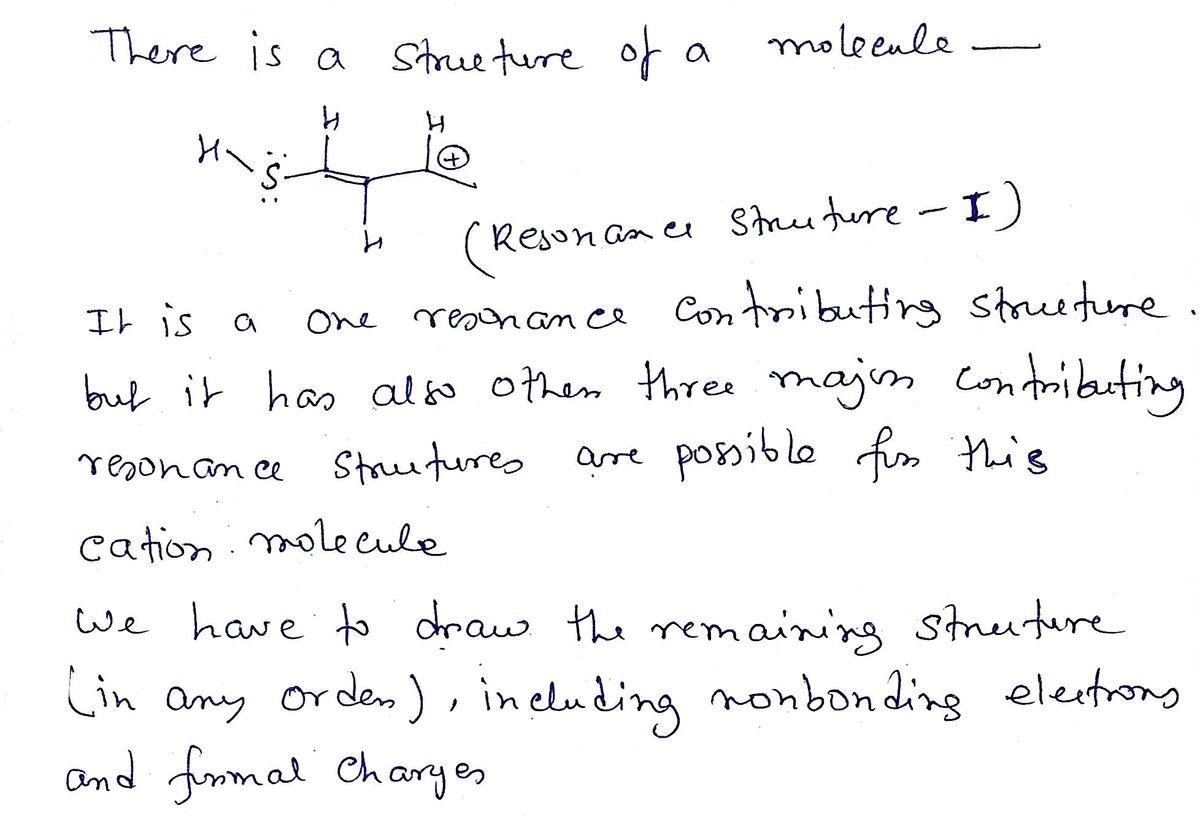 There is a structure of a molecule —
H H
H S̈ ⊕
H
(Resonance Structure - I)
It is a one resonance contributing structure.
but it has also other three major contributing
resonance structures are possible for this
cation. molecule
We have to draw the remaining structure
(in any order), including nonbonding electrons
and formal charges